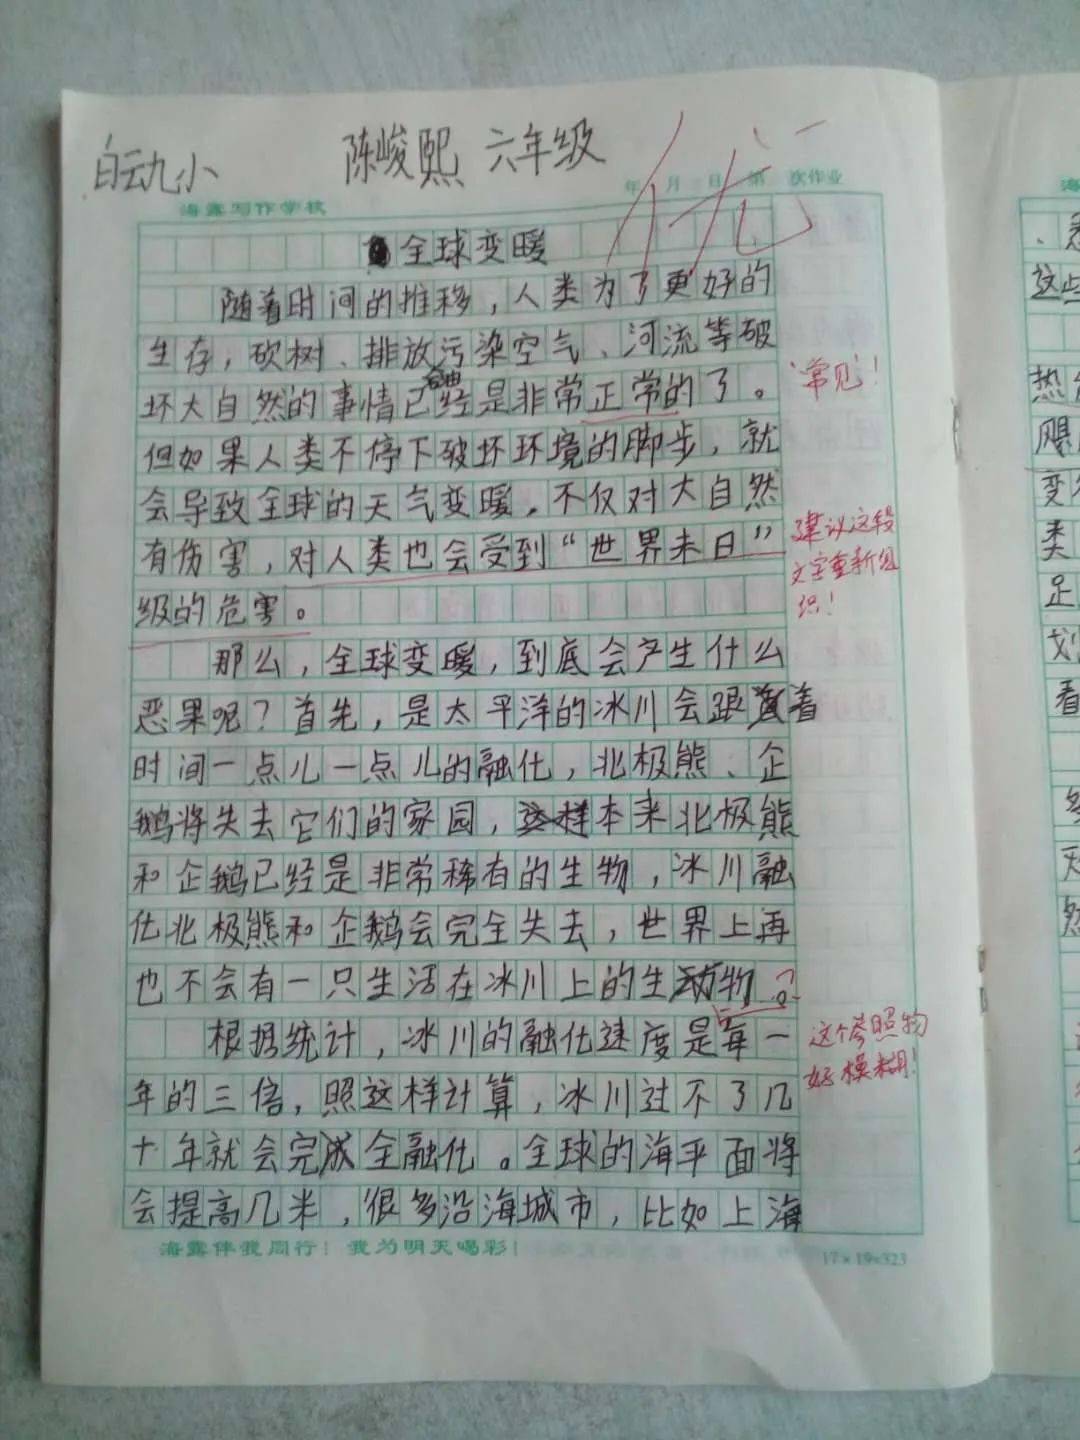 白云九小 陈峻熙 六年级 优
年 月 日 第 次作业
海露写作学校
全球变暖
随着时间的推移，人类为了更好的
生存，砍树、排放污染空气、河流等破
坏大自然的事情已经是非常正常的了。
常见！
但如果人类不停下破坏环境的脚步，就
会导致全球的天气变暖，不仅对大自然
有伤害，对人类也会受到“世界末日”
建议这段
文字重新组
织！
级的危害。
那么，全球变暖，到底会产生什么
恶果呢？首先，是太平洋的冰川会跟着
时间一点儿一点儿的融化，北极熊、企
鹅将失去它们的家园，本来北极熊
和企鹅已经是非常稀有的生物，冰川融
化北极熊和企鹅会完全失去，世界上再
也不会有一只生活在冰川上的生物。
根据统计，冰川的融化速度是每一
这个参照物
好模糊！
年的三倍，照这样计算，冰川过不了几
十年就会完全融化。全球的海平面将
会提高几米，很多沿海城市，比如上海
海露伴我同行！我为明天喝彩！
17×19=323
这些
热
飓
变
类
足
划
看
然